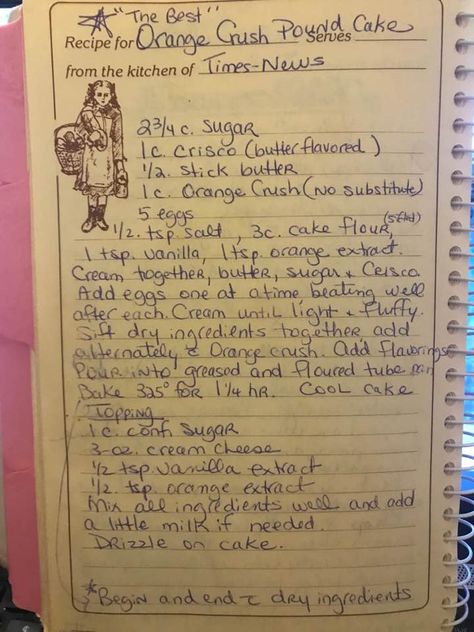 "The Best"
Recipe for Orange Crush Pound Cake Serves
from the kitchen of Times-News
2 3/4 c. sugar
1 c. Crisco (butter flavored)
1/2 stick butter
1 c. Orange Crush (no substitute)
5 eggs
1/2 tsp. salt, 3 c. cake flour, (sifted)
1 tsp. vanilla, 1 tsp. orange extract.
Cream together, butter, sugar & Crisco
Add eggs one at a time beating well
after each. Cream until light & fluffy.
Sift dry ingredients together add
alternately c Orange crush. Add flavorings
Pour into greased and floured tube pan
Bake 325° for 1 1/4 hr. Cool cake
Topping
1 c. conf. sugar
3-oz. cream cheese
1/2 tsp. vanilla extract
1/2 tsp. orange extract
Mix all ingredients well and add
a little milk if needed.
Drizzle on cake.
*Begin and end c dry ingredients